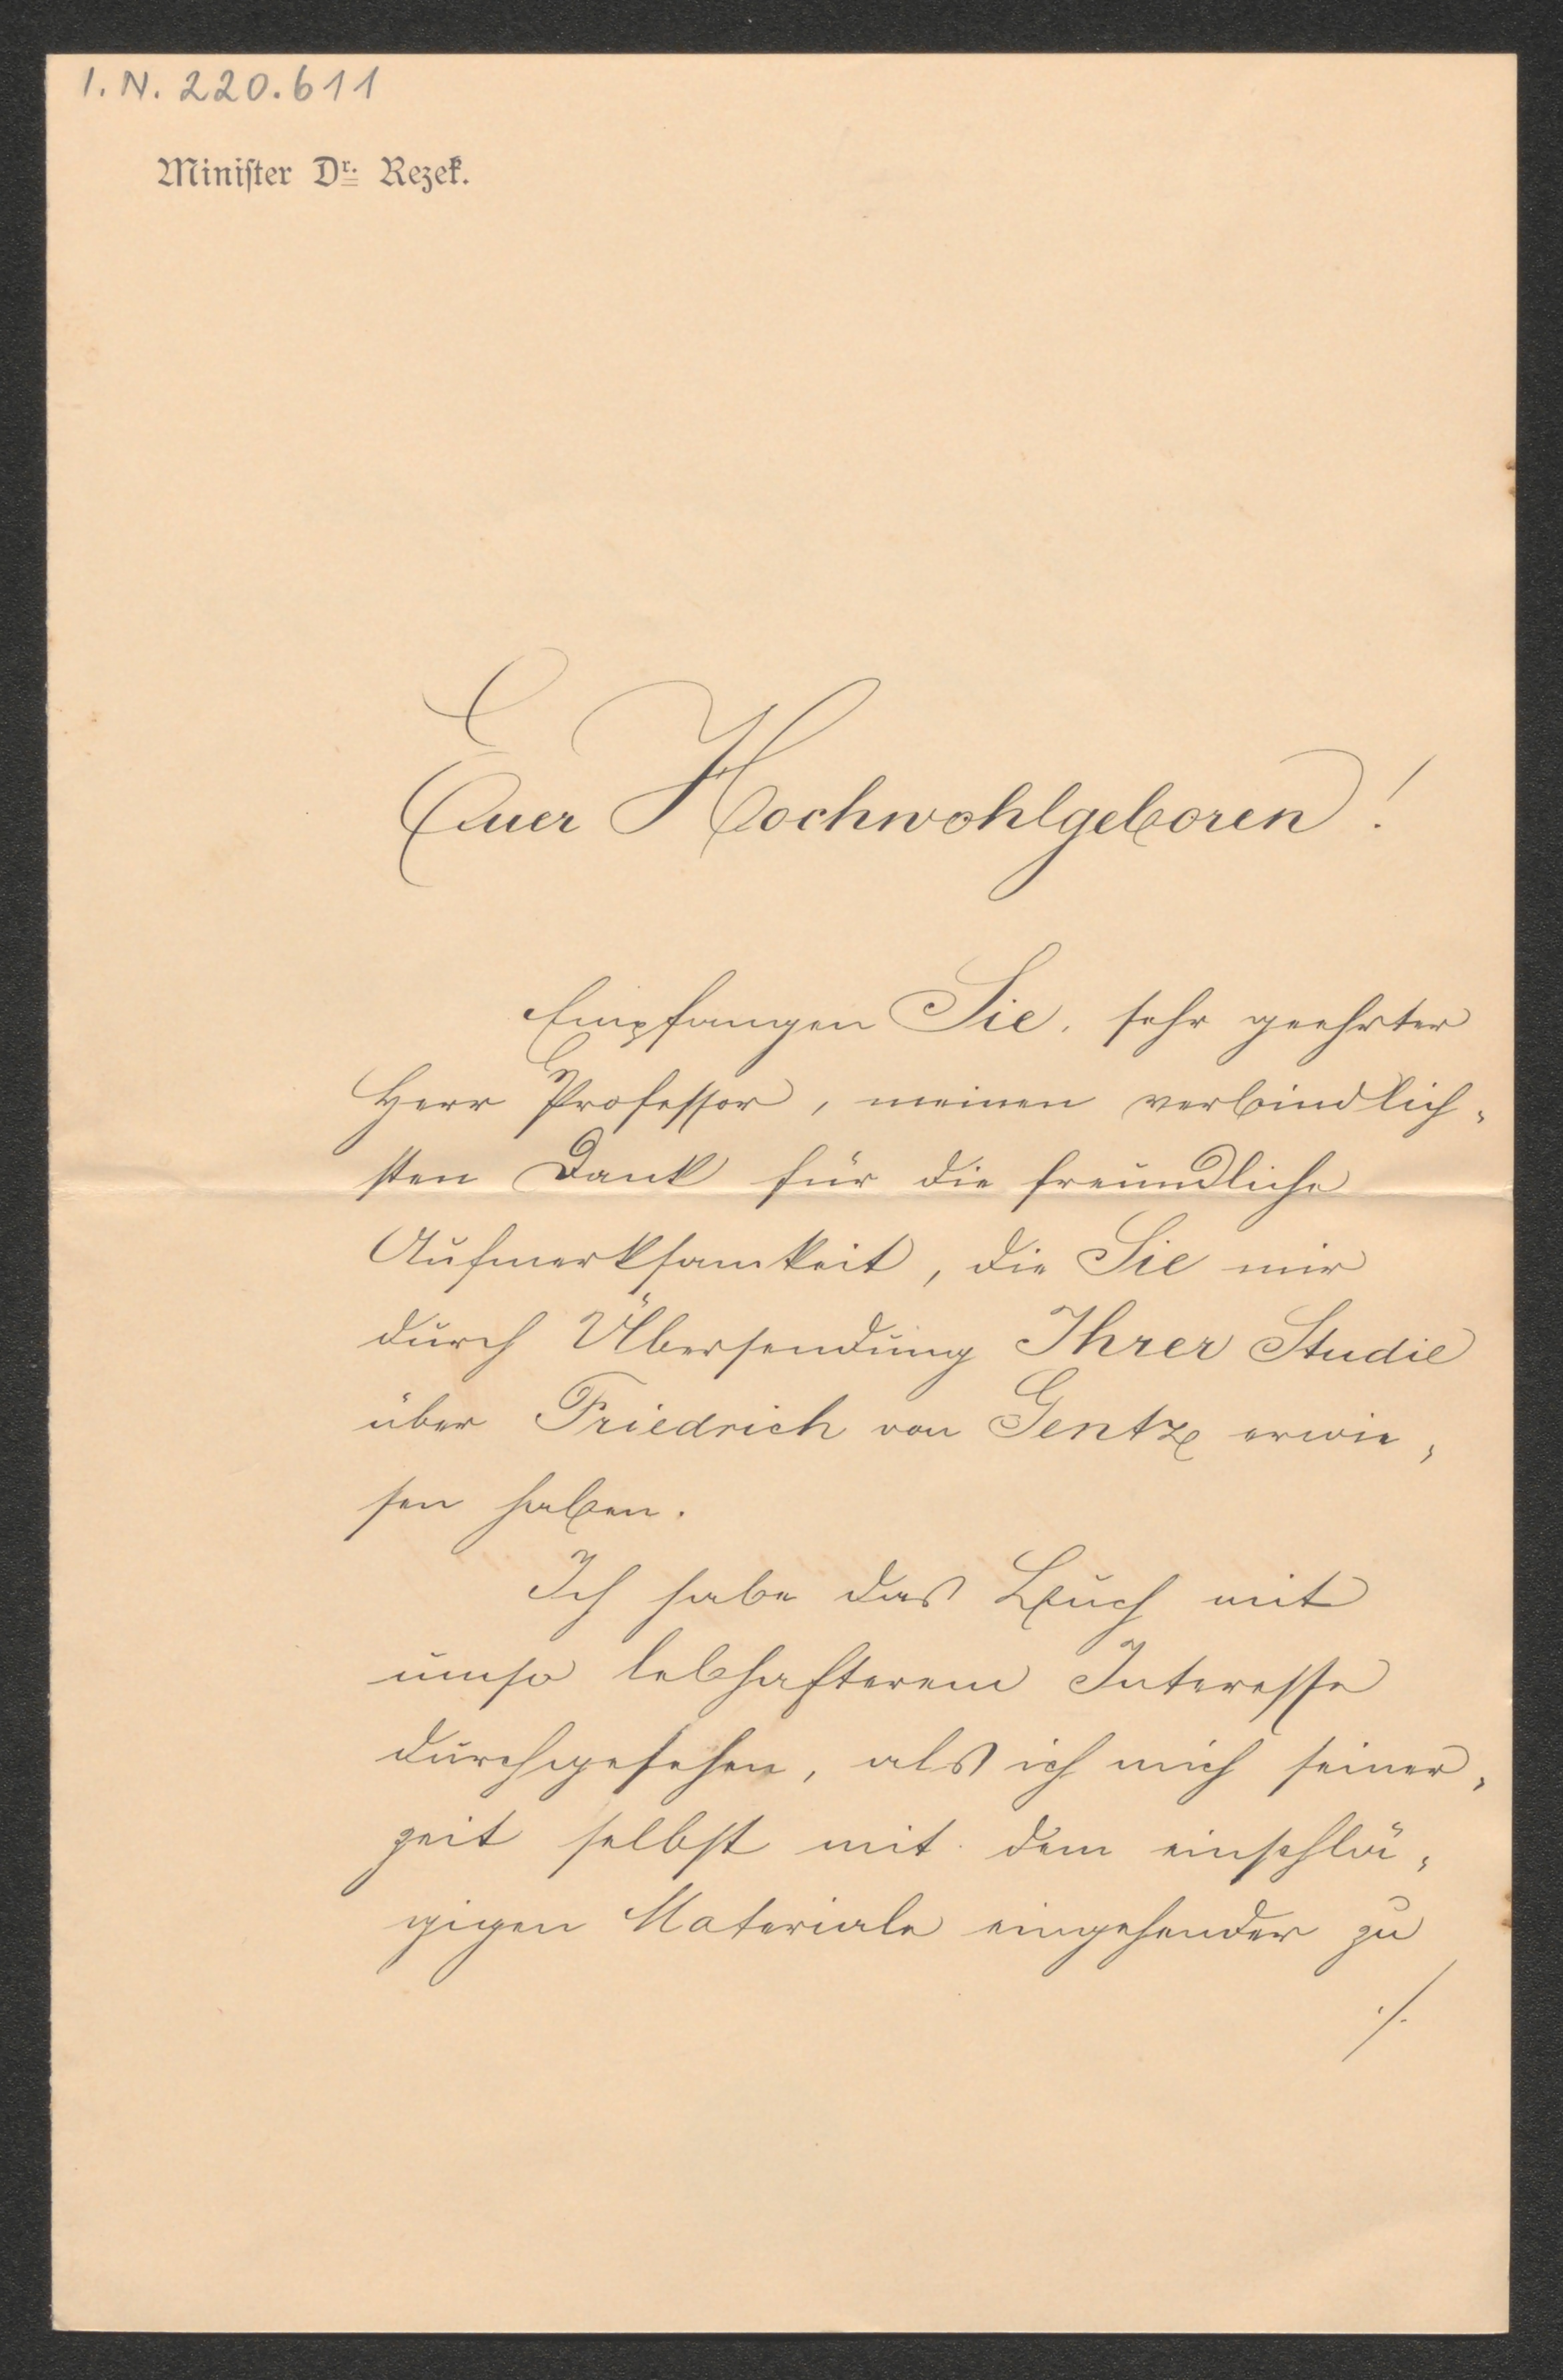 I. N. 220.611
Minister Dr. Rezek.
Euer Hochwohlgeboren!
Empfangen Sie, sehr geehrter
Herr Professor, meinen verbindlich-
sten Dank für die freundliche
Aufmerksamkeit, die Sie mir
durch Übersendung Ihrer Studie
über Friedrich von Gentz erwie-
sen haben.
Ich habe das Buch mit
umso lebhafterem Interesse
durchgesehen, als ich mich seiner-
zeit selbst mit dem einschlä-
gigen Materiale eingehender zu
./.